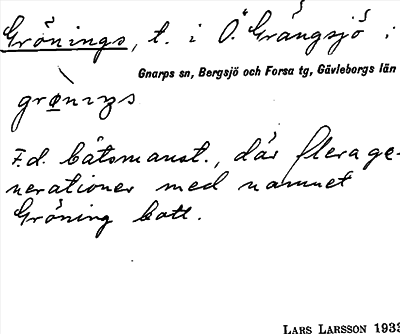 Grönings, t. i Ö. Grängsjö i
Gnarps sn, Bergsjö och Forsa tg, Gävleborgs län
grønings
F.d. båtsmanst., där flera ge-
nerationer med namnet
Gröning bott.
LARS LARSSON 1933